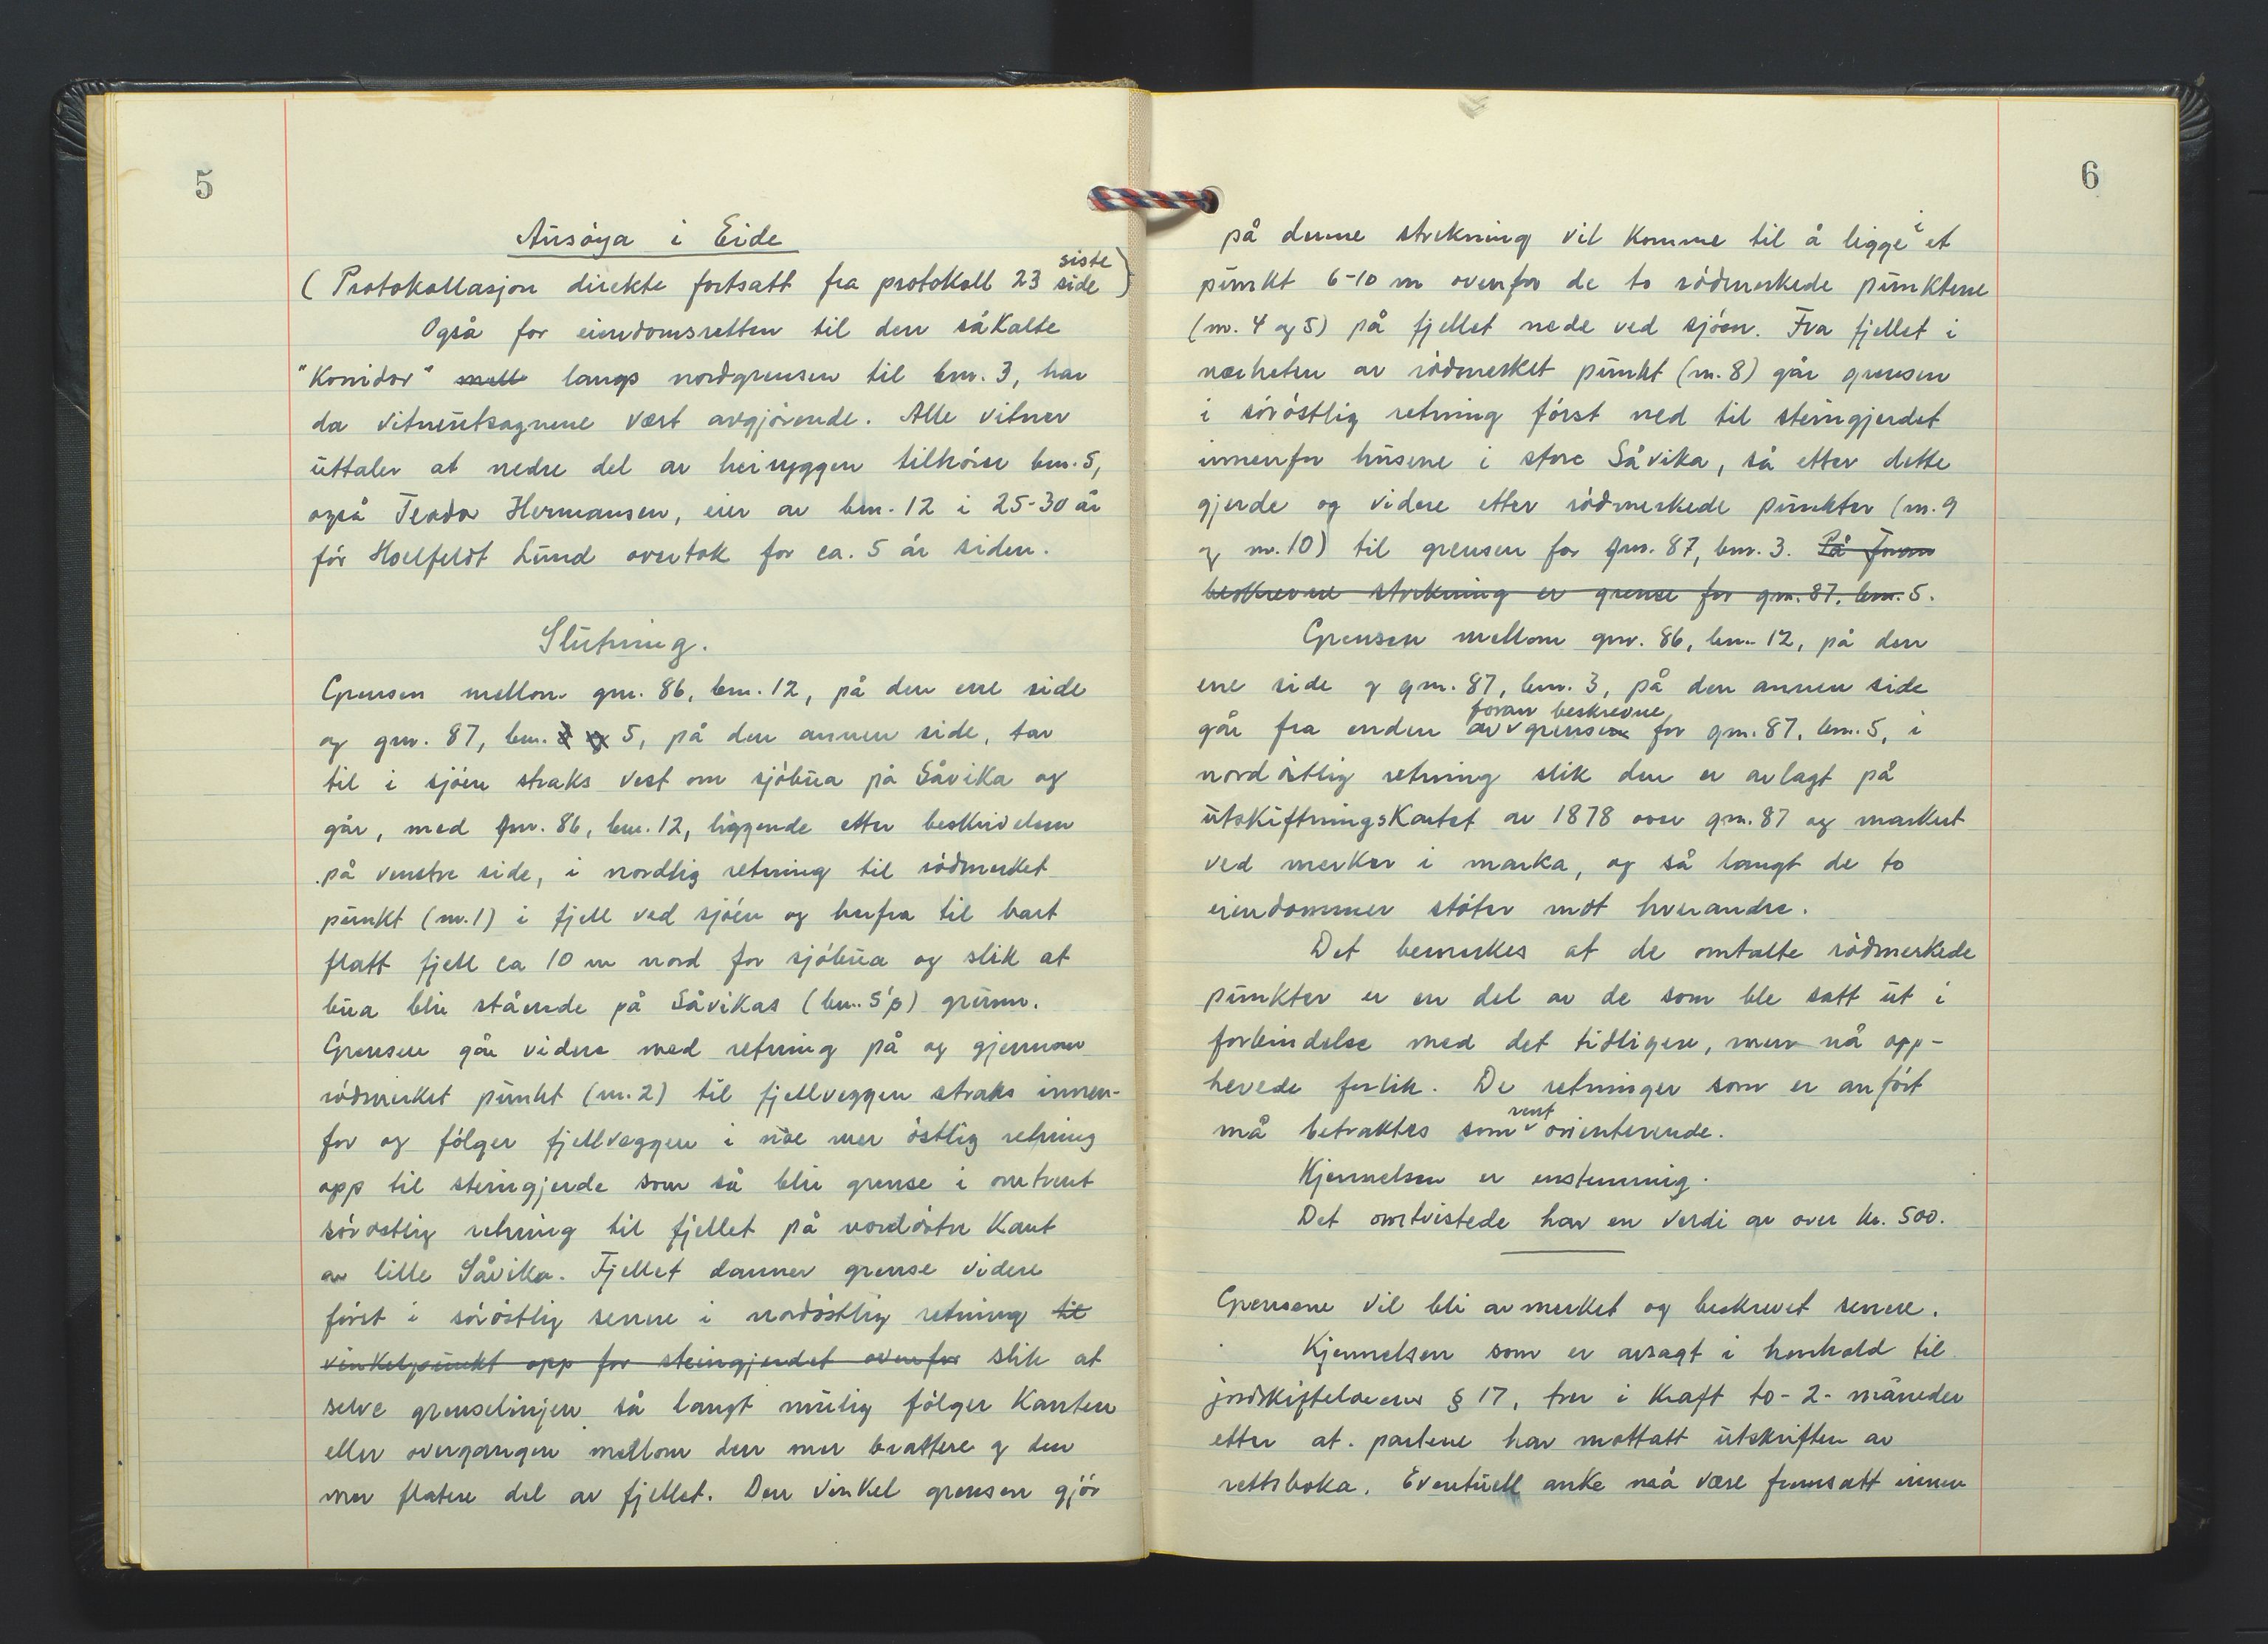 5
Ausöya i Eide
(Protokollasjon direkte fortsatt fra protokoll 23 siste side)
Også for eiendomsretten til den såkalte
"Korridor" mell langs nordgrensen til bnr. 3, har
da vitneutsagnene vært avgjörende. Alle vitner
uttaler at nedre del av heiryggen tilhörer bnr. 5,
også Teodor Hermansen, eier av bnr. 12 i 25-30 år
för Hoelfeldt Lund overtok for ca. 5 år siden.
Slutning.
Grensen mellom gnr. 86, bnr. 12, på den ene side
og gnr. 87, bnr. 3 og 5, på den annen side, tar
til i sjöen straks vest om sjöbua på Såvika og
går, med gnr. 86, bnr. 12, liggende etter beskrivelsen
på venstre side, i nordlig retning til rödmerket
punkt (nr. 1) i fjell ved sjöen og herfra til bart
flatt fjell ca 10 m nord for sjöbua og slik at
bua blir stående på Såvikas (bnr. 5's) grunn.
Grensen går videre med retning på og gjennom
rödmerket punkt (nr. 2) til fjellveggen straks innen-
for og fölger fjellveggen i noe mer östlig retning
opp til steingjerde som så blir grense i omtrent
söröstlig retning til fjellet på nordöstre kant
av lille Såvika. Fjellet danner grense videre
först i söröstlig senere i nordöstlig retning til
vinkelpunkt opp for steingjerdet ovenfor slik at
selve grenselinjen så langt mulig fölger kanten
eller overgangen mellom den mer brattere og den
mer flatere del av fjellet. Den vinkel grensen gjör
6
på denne strekning vil komme til å ligge i et
punkt 6-10 m ovenfor de to rödmerkede punktene
(nr. 4 og 5) på fjellet nede ved sjöen. Fra fjellet i
nærheten av rödmerket punkt (nr. 8) går grensen
i söröstlig retning först ned til steingjerdet
innenfor husene i store Såvika, så etter dette
gjerde og videre etter rödmerkede punkter (nr. 9
og nr. 10) til grensen for gnr. 87, bnr. 3. På foran
beskrevne strekning er grense for gnr. 87, bnr. 5.
Grensen mellom gnr. 86, bnr 12, på den
ene side og gnr. 87, bnr. 3, på den annen side
går fra enden av foran beskrevne grensen for gnr. 87, bnr. 5, i
nordöstlig retning slik den er avlagt på
utskiftningskartet av 1878 over gnr. 87 og markert
ved merker i marka, og så langt de to
eiendommer stöter mot hverandre.
Det bemerkes at de omtalte rödmerkede
punkter er en del av de som ble satt ut i
forbindelse med det tidligere, men nå opp-
hevede forlik. De retninger som er anfört
må betraktes som rent orienterende.
Kjennelsen er enstemmig.
Det omtvistede har en verdi av over kr. 500.
Grensene vil bli avmerket og beskrevet senere.
Kjennelsen som er avsagt i henhold til
jordskiftelovens § 17, trer i kraft to- 2- måneder
etter at partene har mottatt utskriften av
rettsboka. Eventuell anke må være fremsatt innen